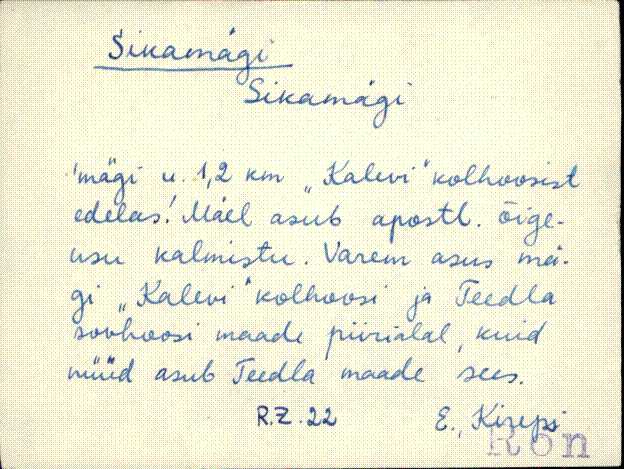 Sikamägi
Sikamägi
'mägi u. 1,2 km „Kalevi" kolhoosist
edelas! Mäel asub apostl. õige-
usu kalmistu. Varem asus mä-
gi „Kalevi" kolhoosi ja Teedla
sovhoosi maade piirialal, kuid
nüüd asub Teedla maade sees.
R.Z. 22 E., Kirepi
Rõn